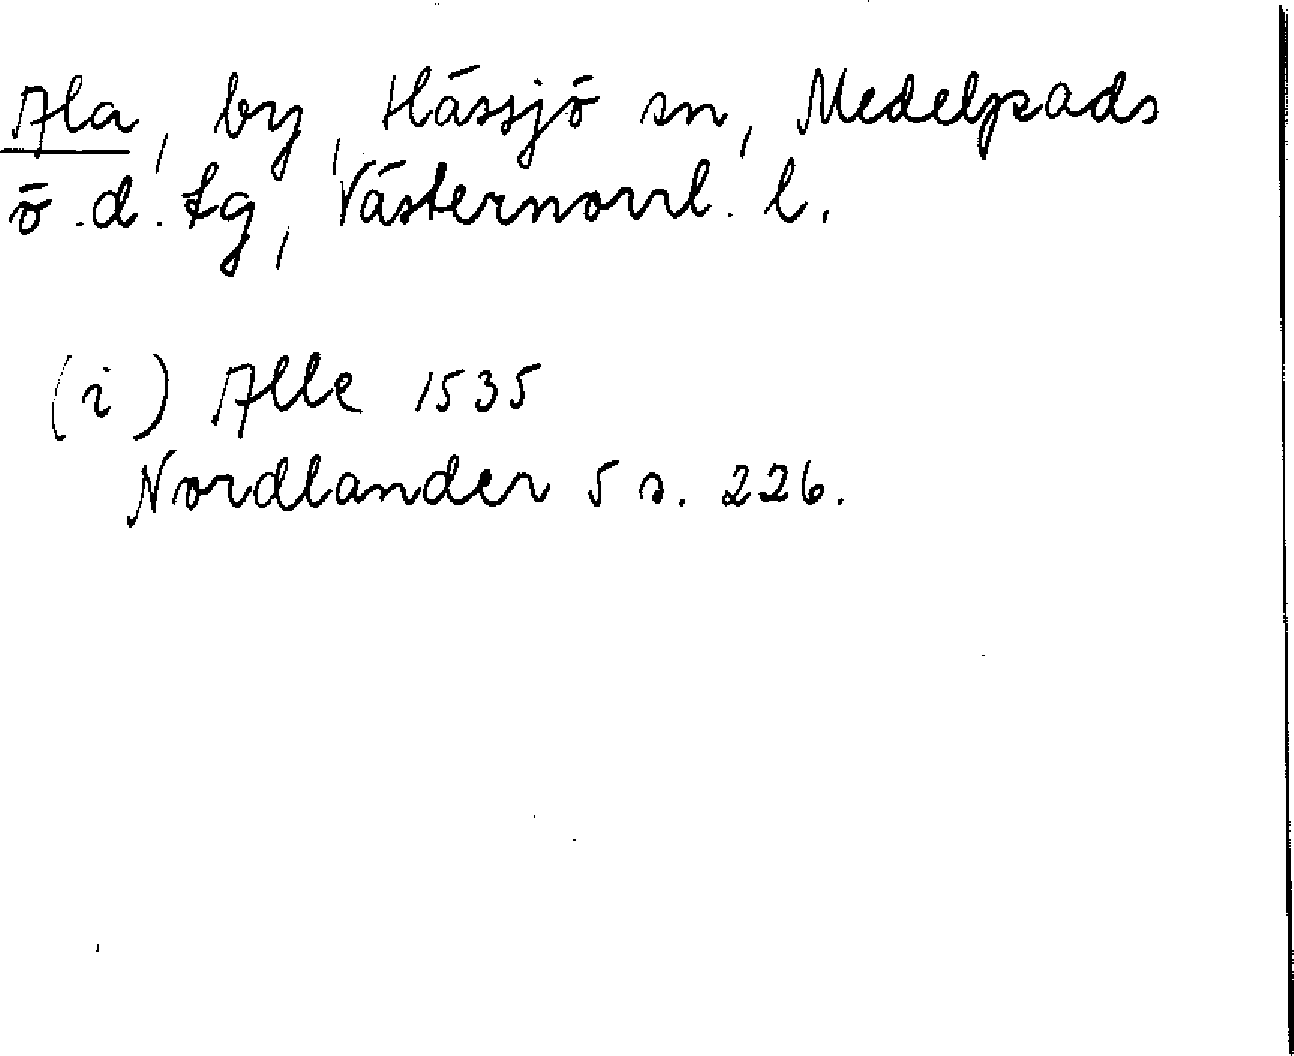 Ala, by, Hässjö sn, Medelpads
ö.d. tg, Västernorrl. l.
(i) Alle 1535
Nordlander 5 s. 226.